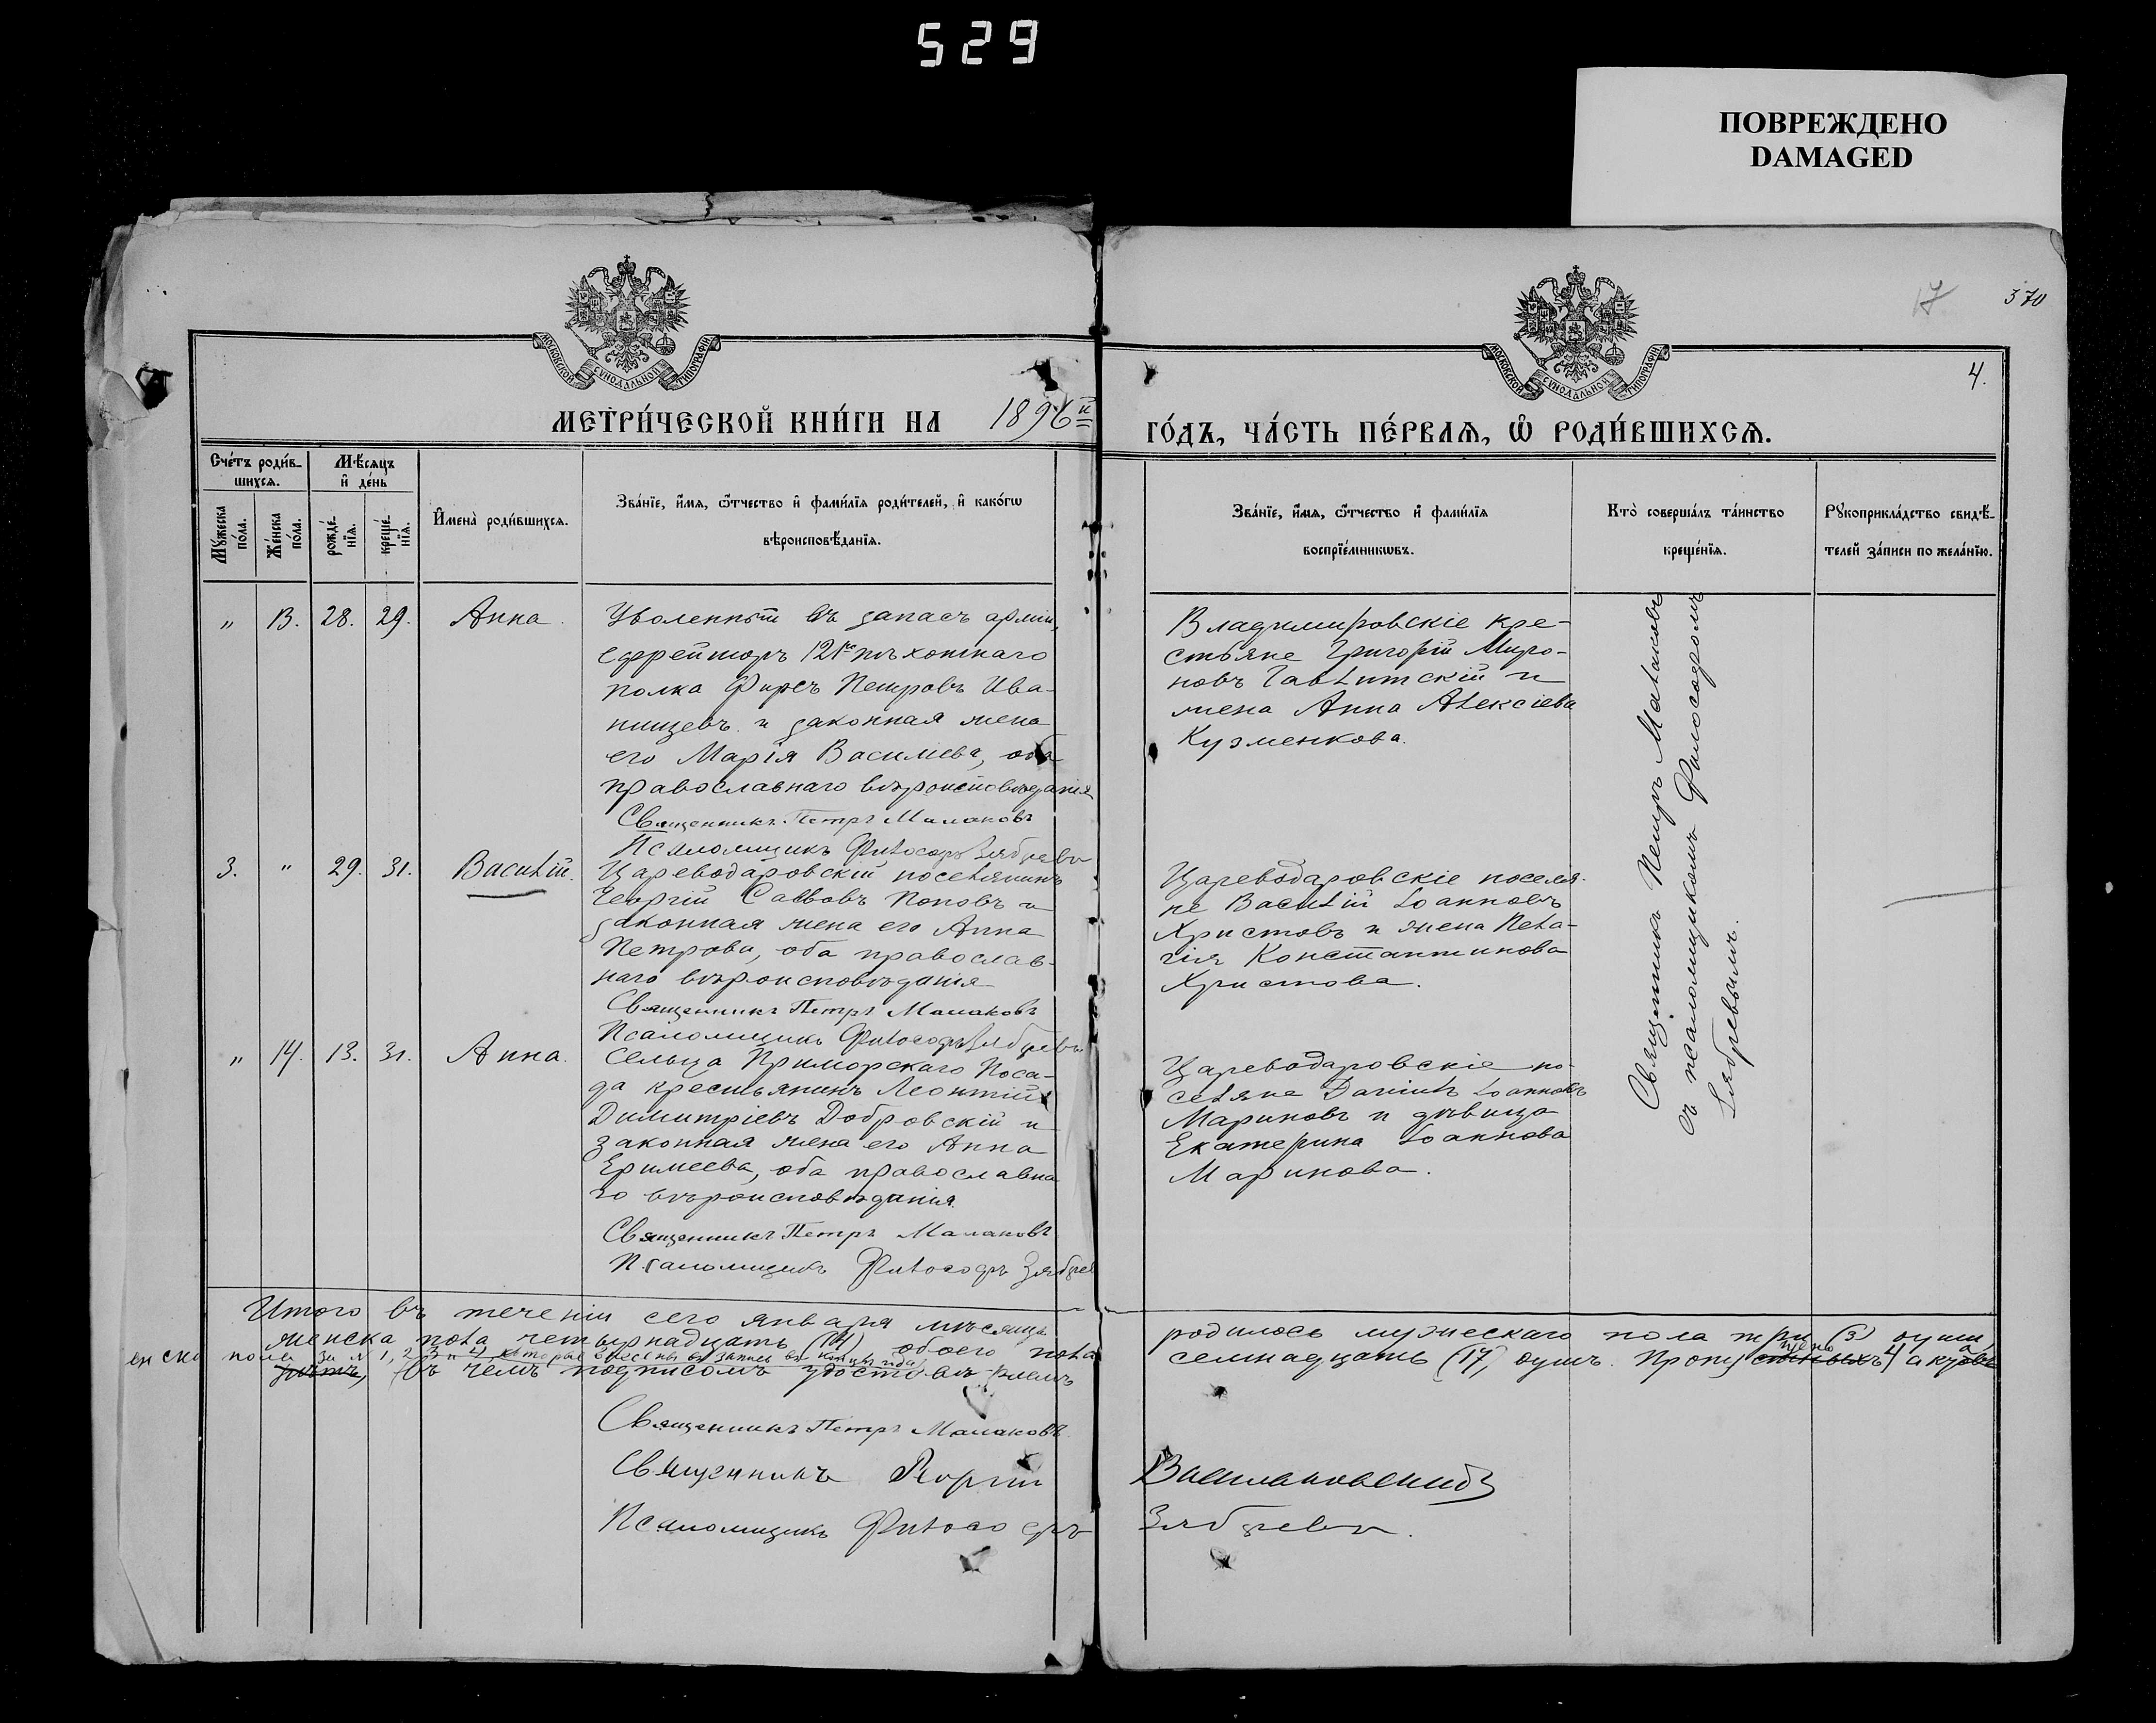 529
ПОВРЕЖДЕНО
DAMAGED
17
370
4.
МОСКОВСКОЙ СѴНОДАЛЬНОЙ ТИПОГРАФІИ
МОСКОВСКОЙ СѴНОДАЛЬНОЙ ТИПОГРАФІИ
МЕТРИ́ЧЕСКОЙ КНИ́ГИ НА 1896й
ГО́ДЪ, ЧА́СТЬ ПЕ́РВАѦ, Ѡ҆ РОДИ́ВШИХСѦ.
Сче́тъ роди́в-
шихсѧ.
Мѣ́сѧцъ
и҆ де́нь
Мꙋ́жеска
по́ла.
Же́нска
по́ла.
рожде́-
нїѧ.
креще́-
нїѧ.
И҆мена̀ роди́вшихсѧ.
Зва́нїе, и҆́мѧ, ѻ҆́тчество и҆ фами́лїѧ роди́телей, и҆ како́гѡ
вѣроисповѣ́данїѧ.
Зва́нїе, и҆́мѧ, ѻ҆́тчество и҆ фами́лїѧ
воспрїе́мникѡвъ.
Кто̀ соверша́лъ та́инство
креще́нїѧ.
Рꙋкоприкла́дство свидѣ́-
телей за́писи по жела́нїю.
" 13. 28. 29. Анна.
Уволенный въ запасъ арміи,
ефрейторъ 121го пѣхотнаго
полка Фирсъ Петровъ Ива-
нищевъ и законная жена
его Марія Василіева, оба
православнаго вѣроисповѣданія
Священникъ Петръ Малаковъ
Псаломщикъ Философъ Зябревъ
Владимировскіе кре-
стьяне Григорій Миро-
новъ Гавлитскій и
жена Анна Алексіева
Кузменкова.
Священникъ Петръ Малаковъ
съ псаломщикомъ Философомъ
Зябревымъ.
3. " 29. 31. Василій.
Цареводаровскій поселянинъ
Георгій Саввовъ Поповъ и
законная жена его Анна
Петрова, оба православ-
наго вѣроисповѣданія
Священникъ Петръ Малаковъ
Псаломщикъ Философъ Зябревъ
Цареводаровскіе поселя-
не Василій Іоанновъ
Христовъ и жена Пела-
гія Константинова
Христова.
" 14. 13. 31. Анна.
Сельца Приморскаго Поса-
да крестьянинъ Леонтій
Димитріевъ Добровскій и
законная жена его Анна
Еримеева, оба православна
го вѣроисповѣданія.
Священникъ Петръ Малаковъ
Псаломщикъ Философъ Зябрев
Цареводаровскіе по-
селяне Даніилъ Іоанновъ
Мариновъ и дѣвица
Екатерина Іоаннова
Маринова.
Итого въ теченіи сего января мѣсяца родилось мужескаго пола три (3) души,
женска пола четырнадцать (14) обоего пола семнадцать (17) душъ. Пропущено 4 а
енска пола за № 1, 2, 3 и 4 которые внесены въ запись въ концѣ года
въ чемъ подписомъ удостовѣряемъ
Священникъ Петръ Малаковъ.
Священникъ Георгій
Псаломщикъ Философъ Зябревъ.